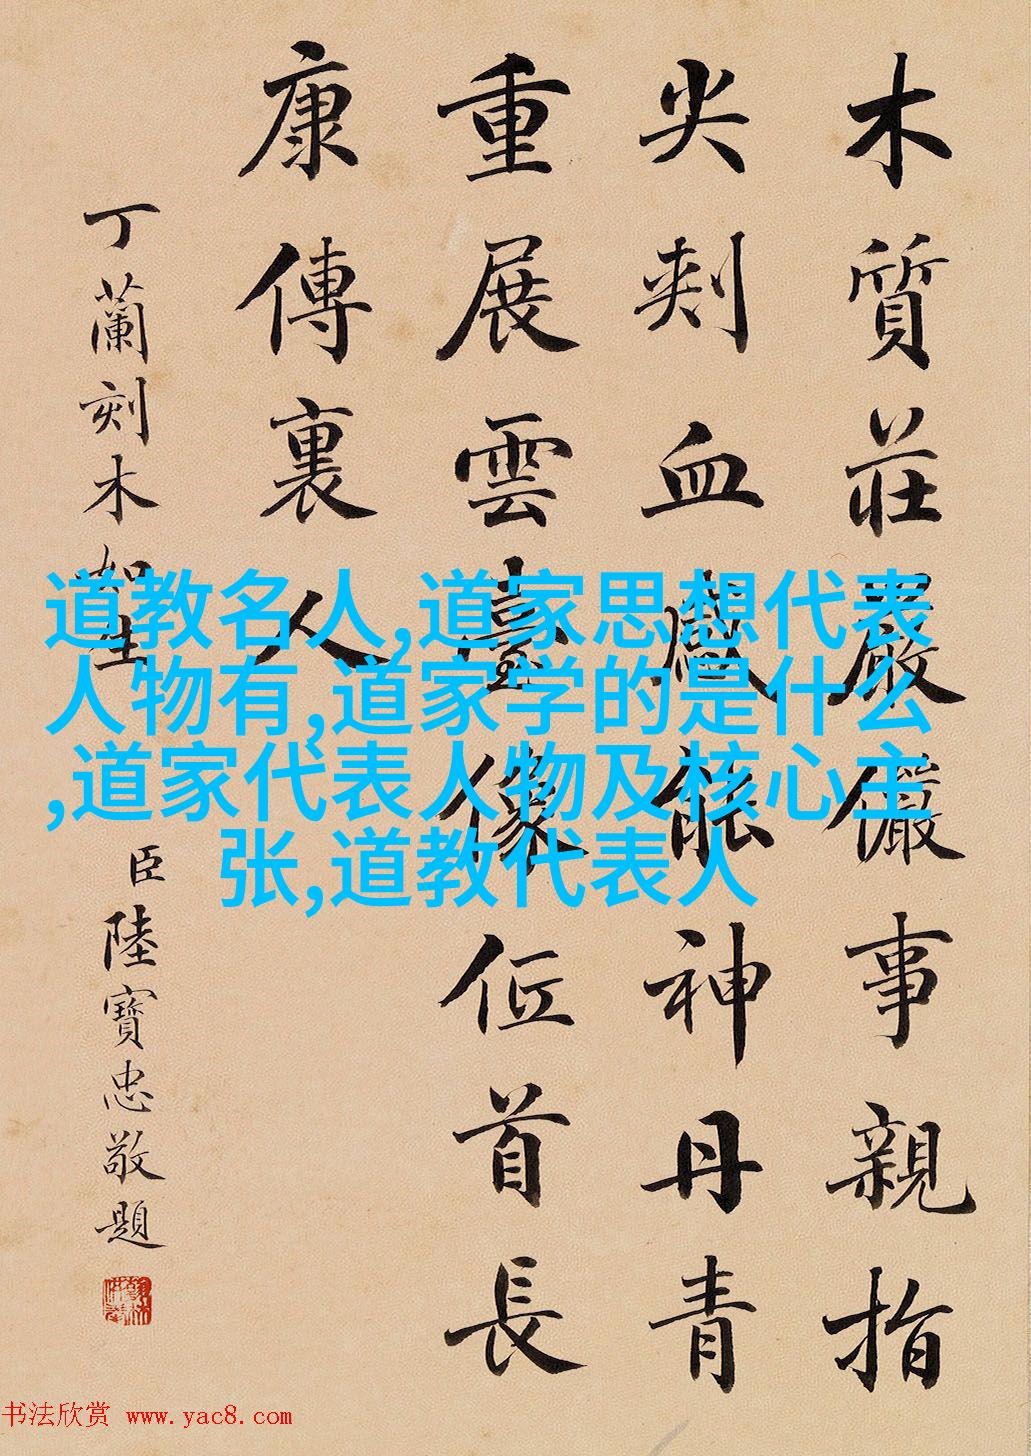 木質莊嚴儼事親指
尖刺血感能神丹青
重展雲臺像位首長
康傳裏人
丁蘭刻木如生
臣陸寶忠敬題
道教名人,道家思想代表
人物有,道家学的是什么
,道家代表人物及核心主
张,道教代表人
书法欣赏 www.yac8.com